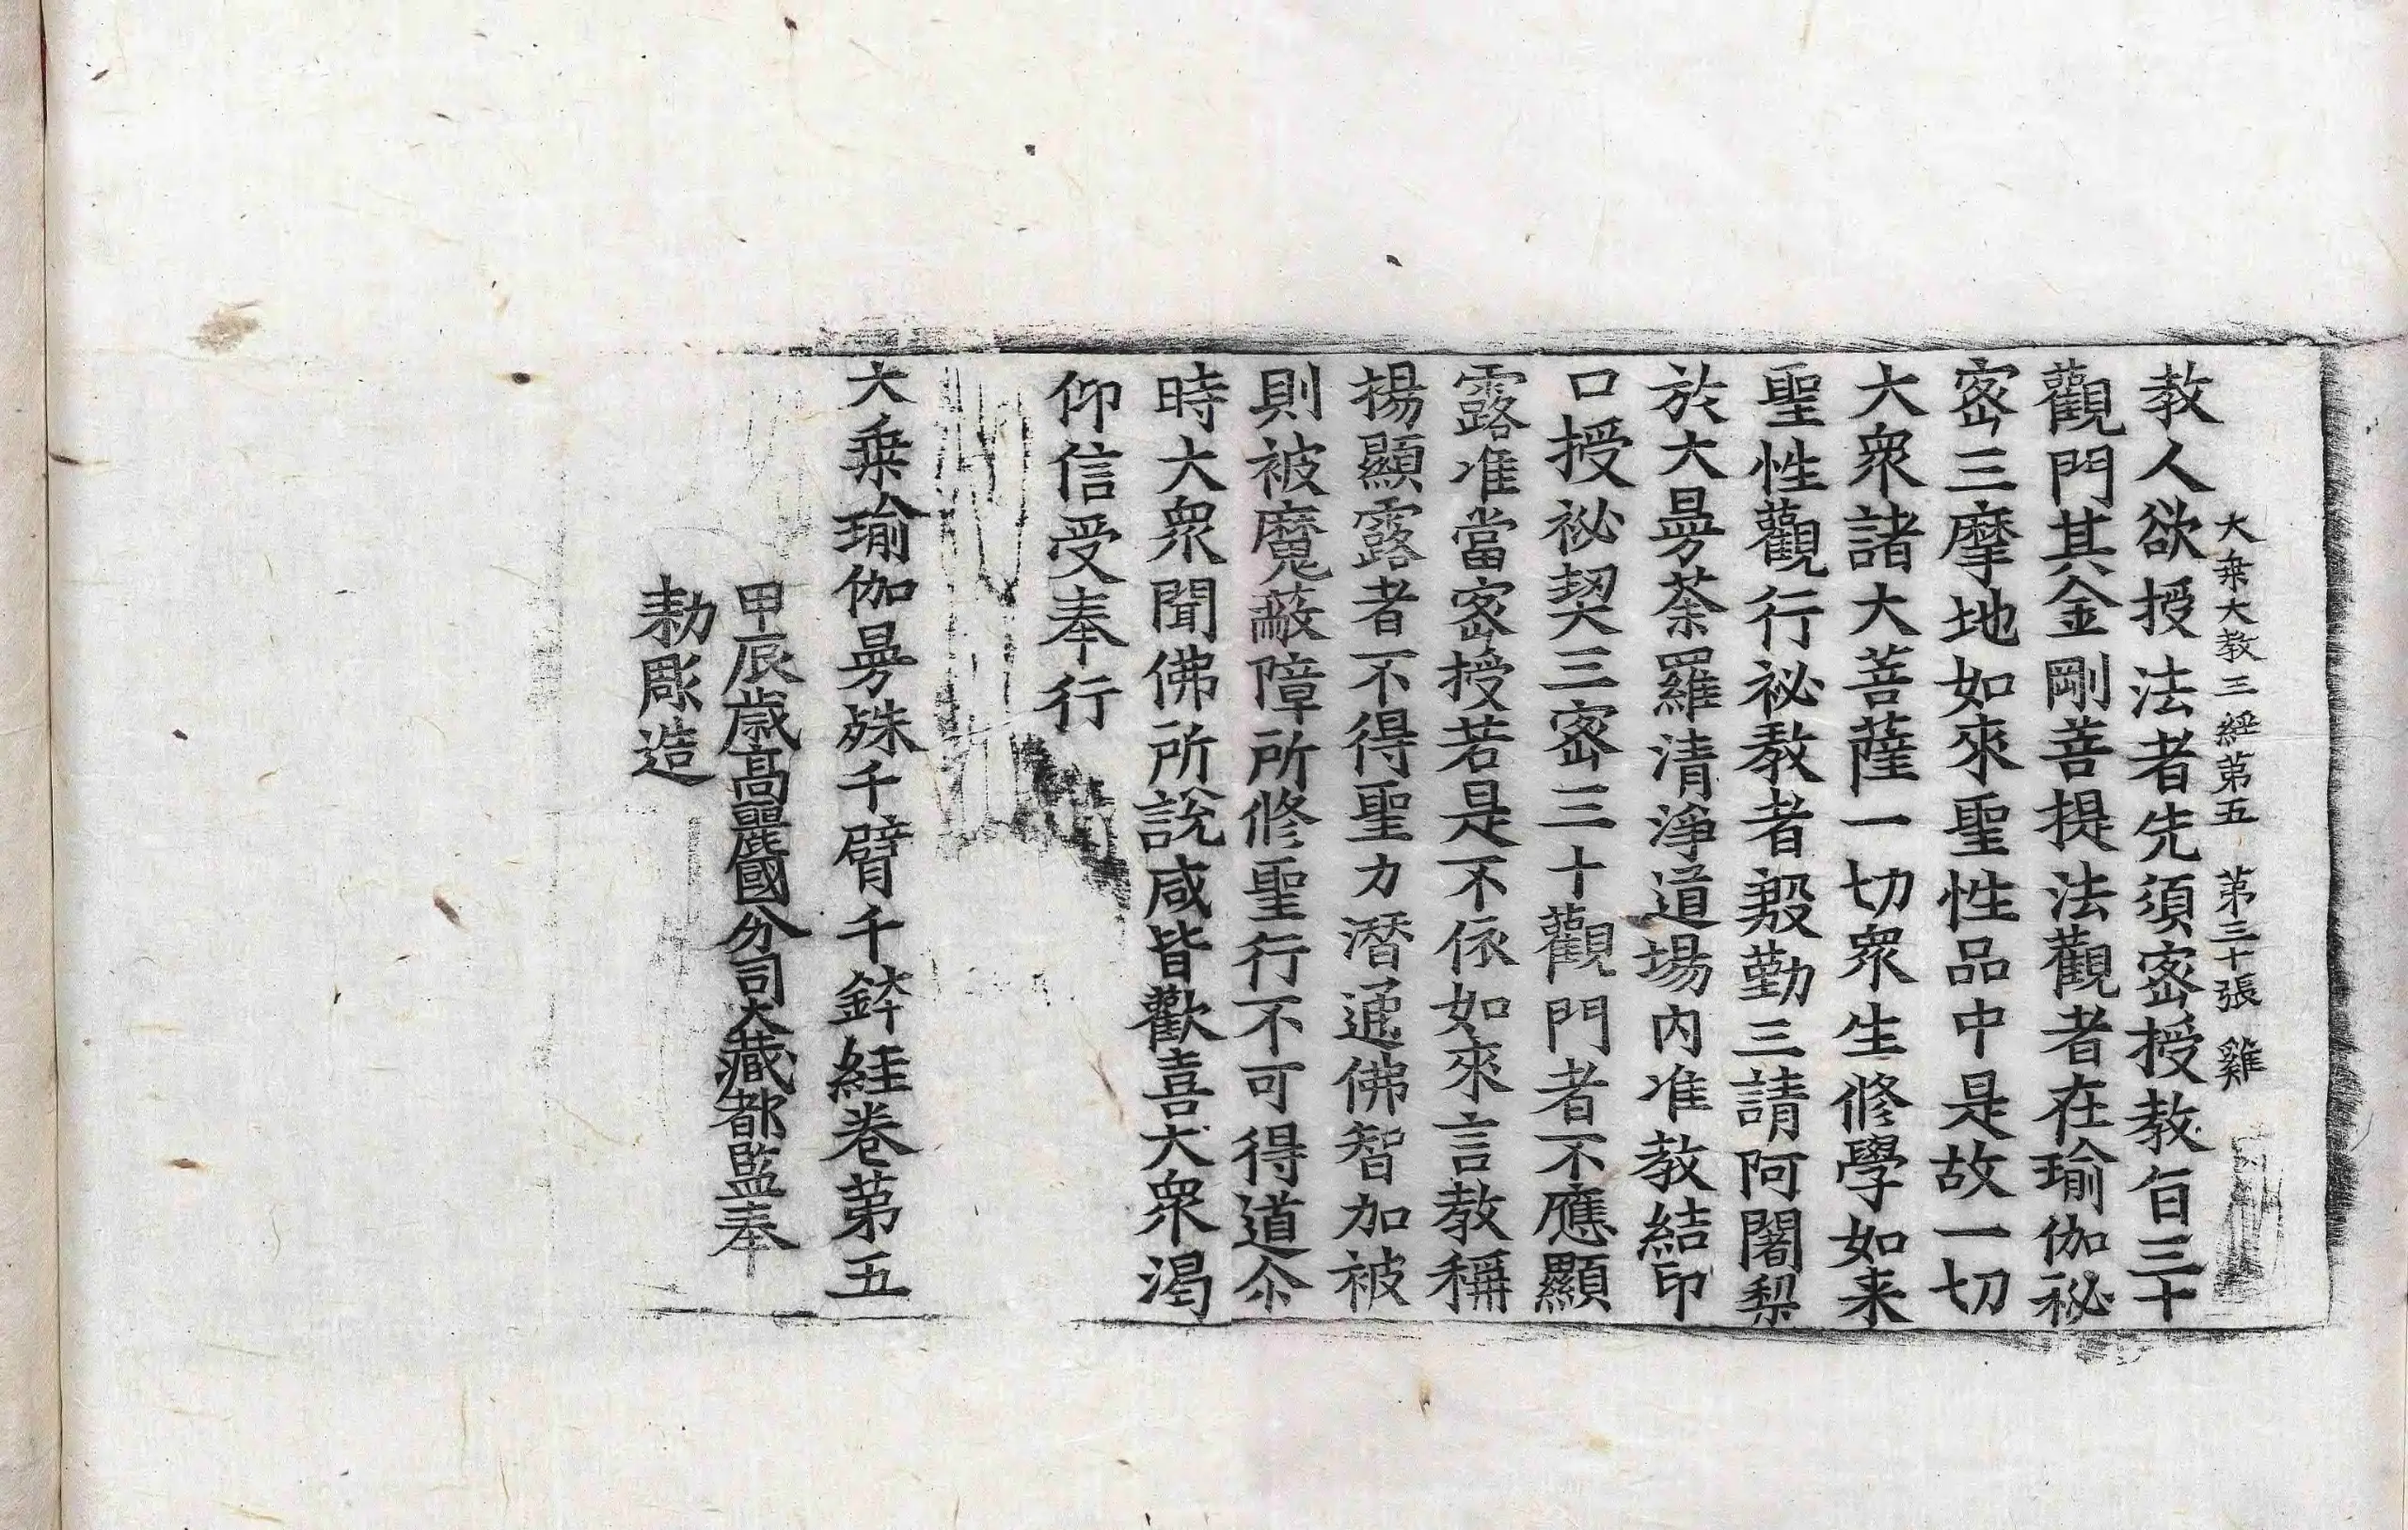 大乗大教王經第五 第三十張 雞
教人欲授法者先須宻授教㫖三十
觀門其金剛菩提法觀者在瑜伽祕
宻三摩地如來聖性品中是故一切
大衆諸大菩薩一切衆生修學如来
聖性觀行祕教者慇勤三請阿闍梨
於大曼荼羅清淨道場内准教結印
口授祕契三宻三十觀門者不應顯
露准當宻授若是不依如來言教稱
揚顯露者不得聖力潛通佛智加被
則被魔蔽障所修聖行不可得道尒
時大衆聞佛所說咸皆歡喜大衆渴
仰信受奉行
大乗瑜伽曼殊千臂千鉢経卷第五
甲辰歳髙麗國分司大藏都監奉
勑彫造